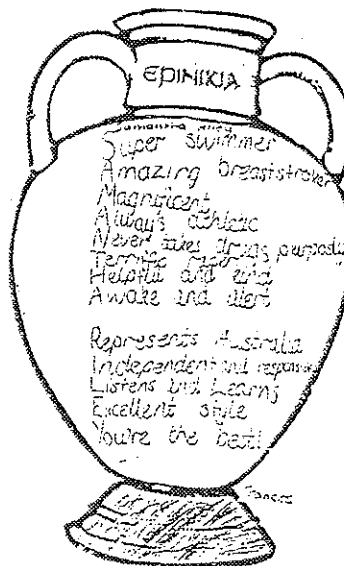 EPINIKIA
Samantha Riley
Super swimmer
Amazing breaststroker
Magnificent
Always athletic
Never takes drugs purposly
Terrific
Helpful and kind
Awake and alert
Represents Australia
Independent and responsible
Listens and Learns
Excellent style
You're the best!